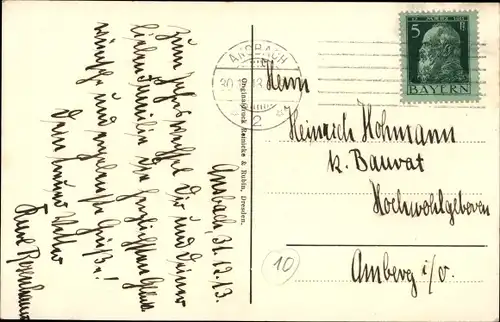 Ansbach, 31.12.13.
Zum Jahreswechsel Dir und Deiner
lieben Familie die herzlichsten Glück-
wünsche und ergebenste Grüße!
Dein treuer Vetter
Originaldruck Remicke & Rubin, Dresden.
ANSBACH
30
13
2
5 BAYERN
Herrn
Heinrich Hohmann
k. Baurat
Hochwohlgeboren
Amberg i/o.
10